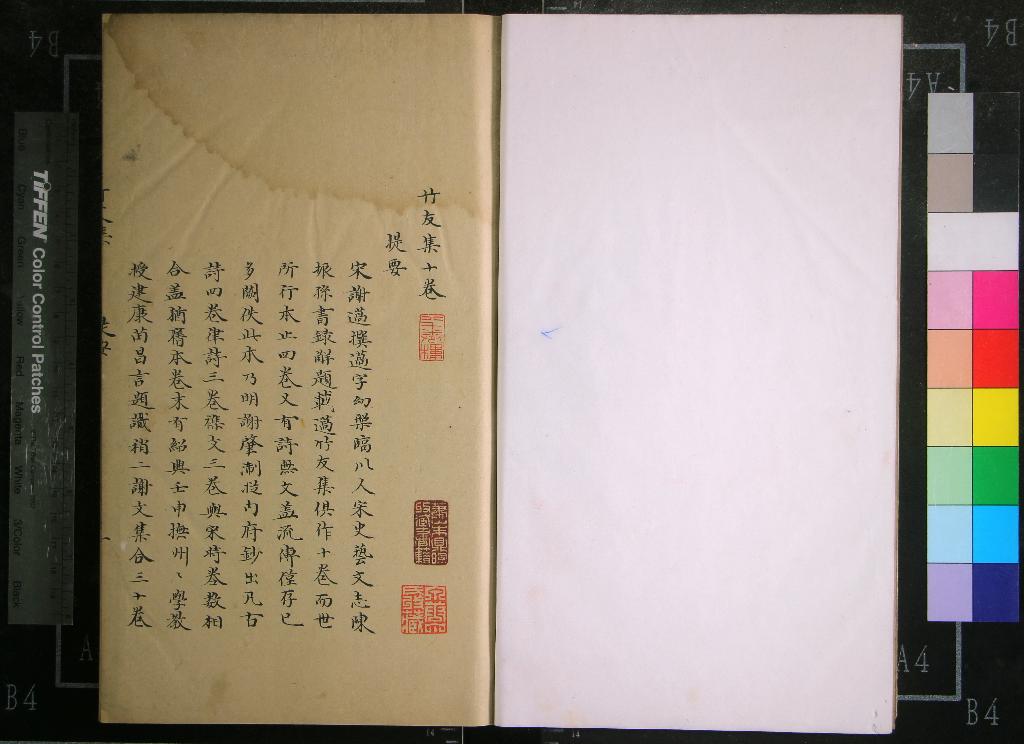 竹友集十卷
提要
宋謝薖撰薖字幼槃臨川人宋史藝文志陳
振孫書錄解題載薖竹友集俱作十卷而世
所行本止四卷又有詩無文蓋流傳僅存已
多闕佚此本乃明謝肇淛從內府鈔出凡古
詩四卷律詩三卷襍文三卷與宋時卷數相
合蓋猶舊本卷末有紹興壬申撫州州學教
授建康苗昌言題識稱二謝文集合三十卷
TIFFEN Color Control Patches
Blue Cyan Green Yellow Red Magenta White 3/Color Black
B4
B4
A4
A4
A
B4
B4